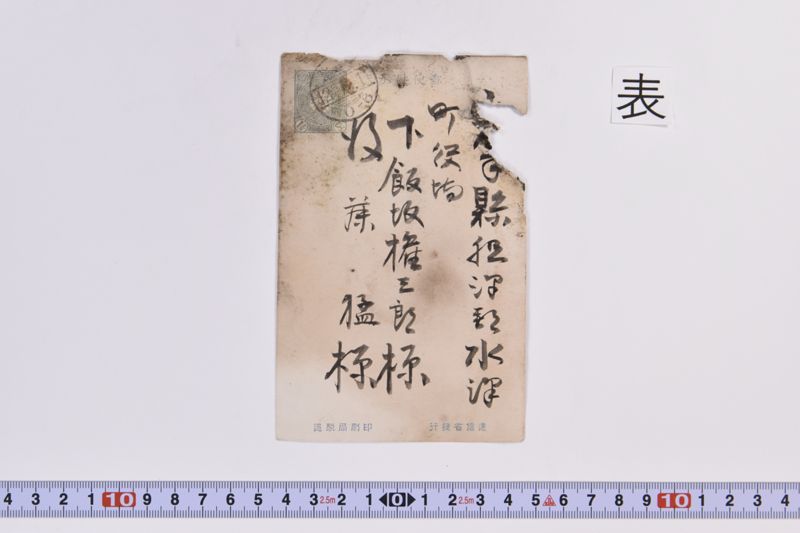 表
手縣胆澤郡水澤
町役場
下飯坂権三郎様
後藤 猛様
逓信省發行
印刷局製造
4 3 2 1 10 9 8 7 6 5 4 3 2.5m 2 1 0 1 2 2.5m 3 4 5 6 7 8 9 10 1 2 3 4